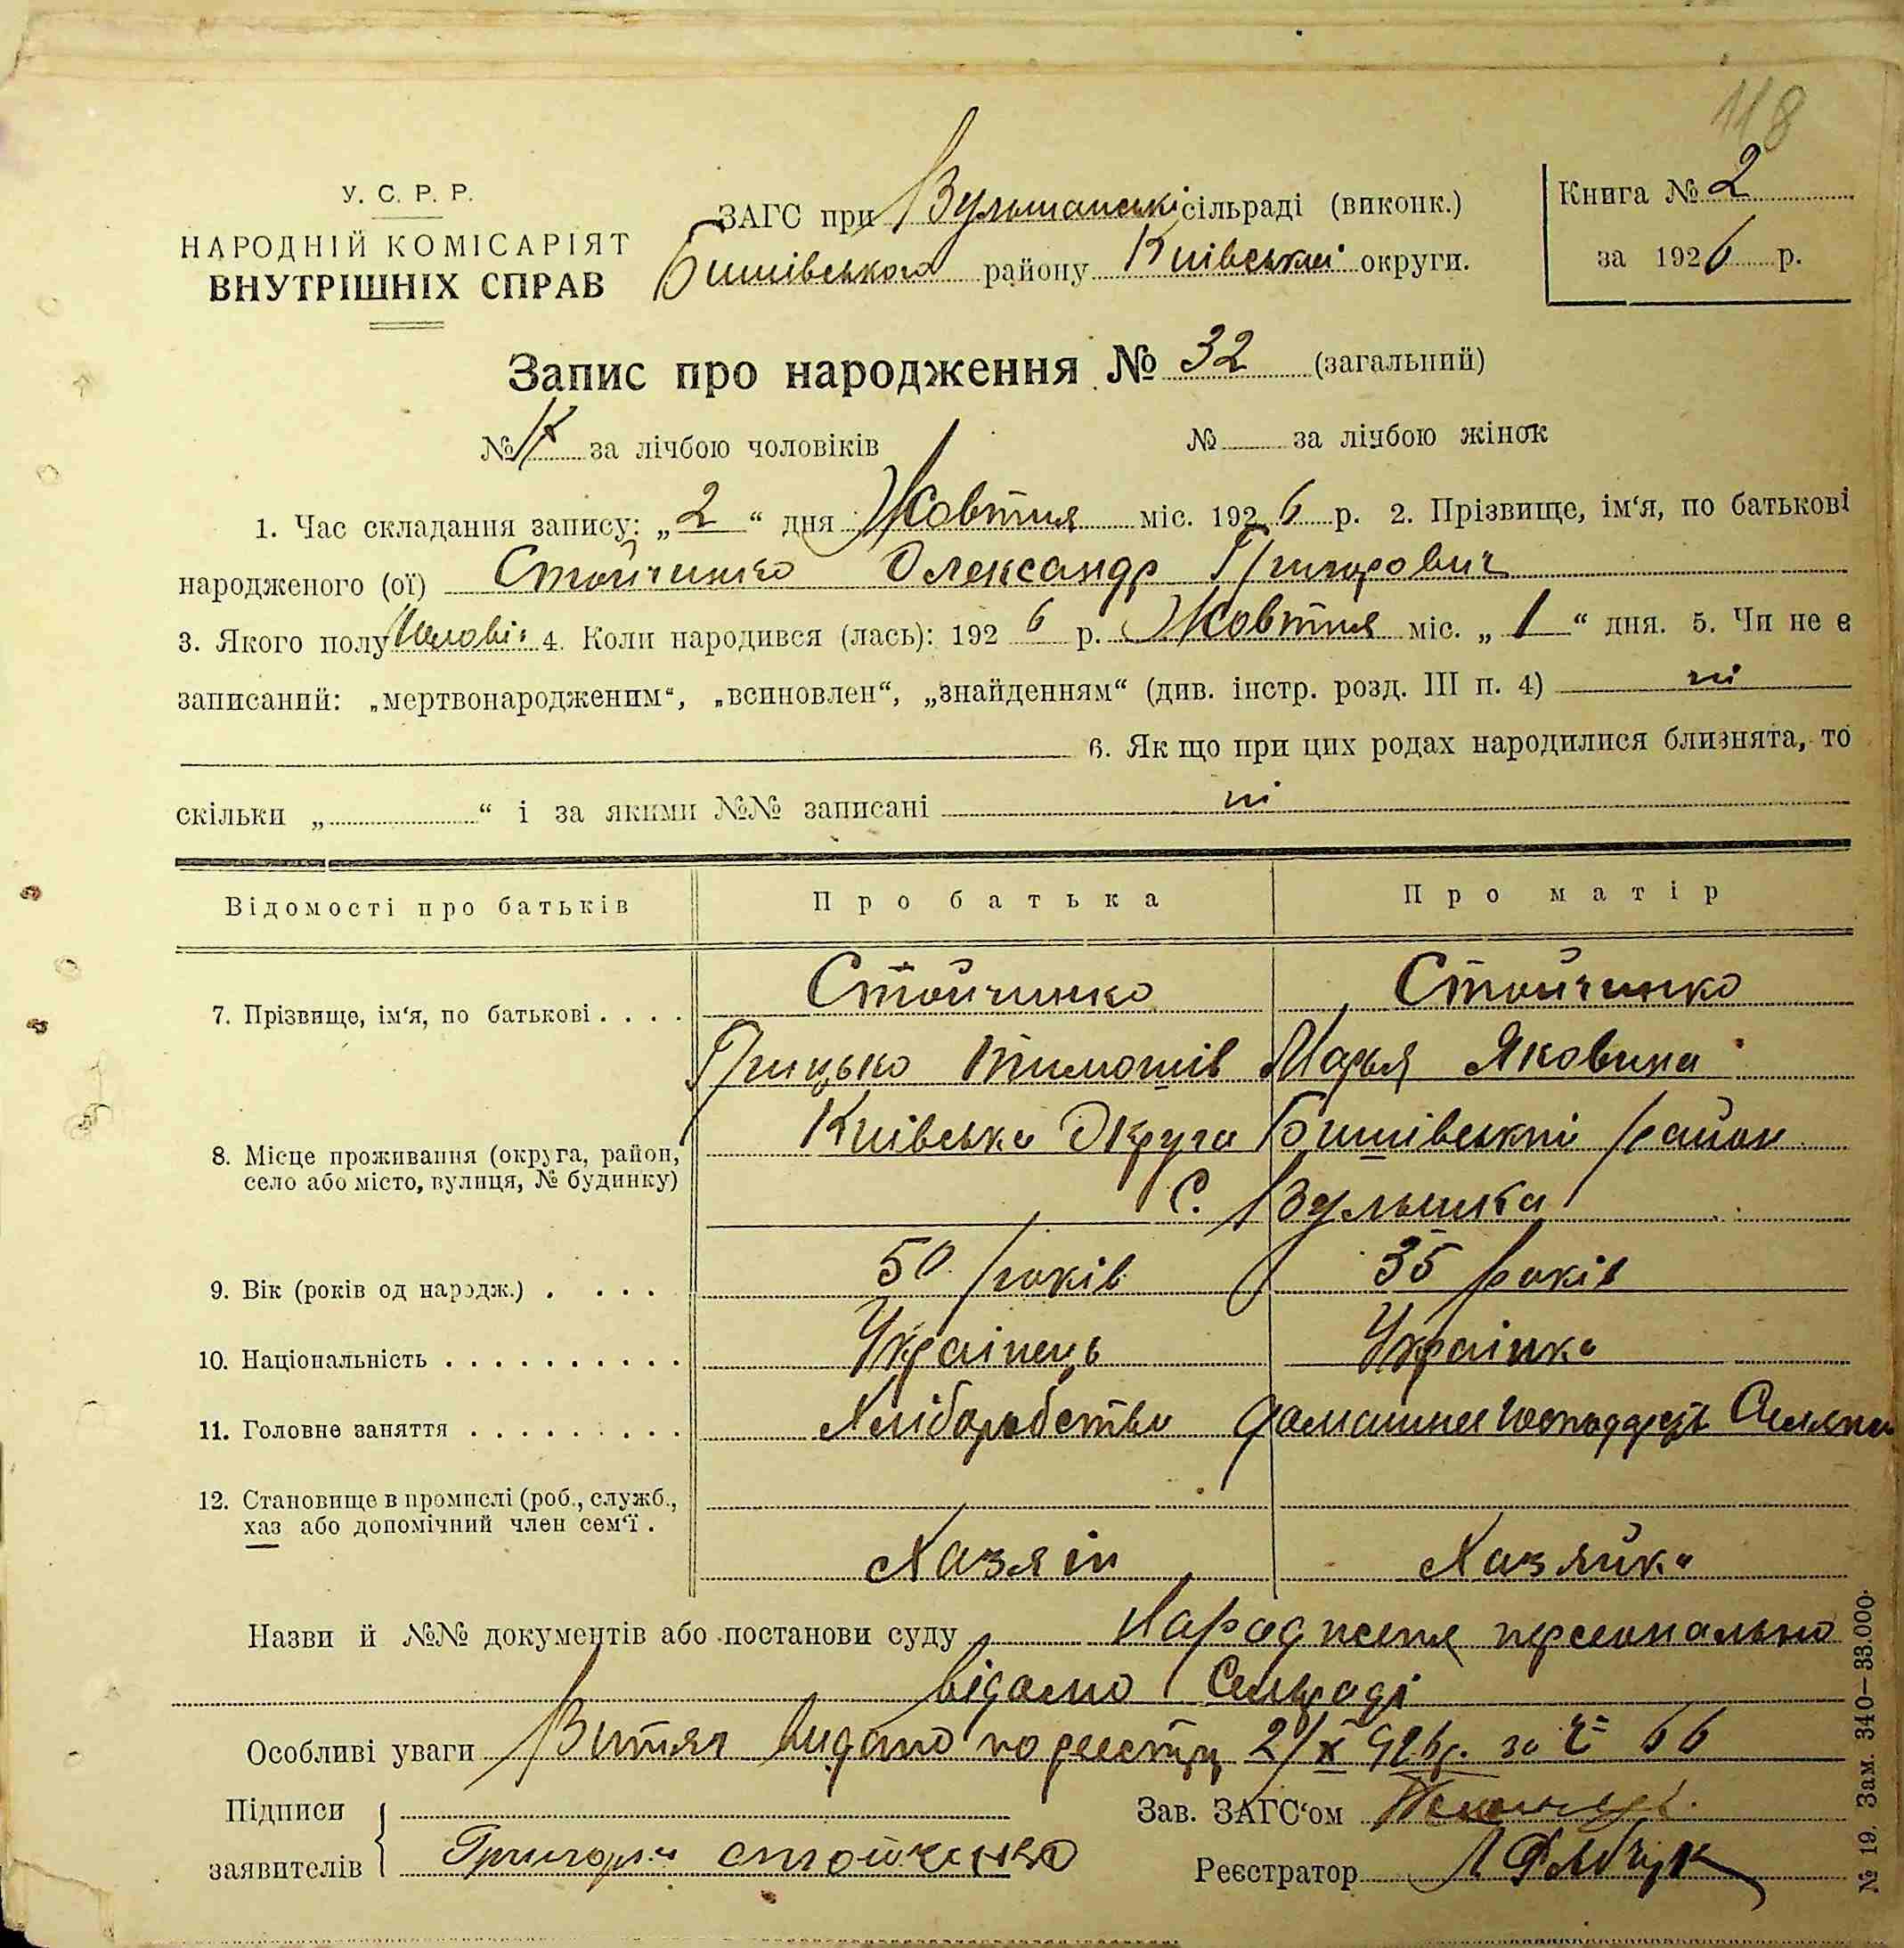 118
У. С. Р. Р.
НАРОДНІЙ КОМІСАРІЯТ
ВНУТРІШНІХ СПРАВ
ЗАГС при Вульшанські сільраді (виконк.)
Бишівського району Київській округи.
Книга № 2
за 1926 р.
Запис про народження № 32 (загальний)
№ за лічбою чоловіків № за лічбою жінок
1. Час складання запису: „2“ дня Жовтня міс. 1926 р. 2. Прізвище, ім‘я, по батькові
народженого (ої) Стойчинко Олександр Григорович
3. Якого полу Чолові 4. Коли народився (лась): 1926 р. Жовтня міс. „1“ дня. 5. Чи не є
записаний: „мертвонародженим“, „всиновлен“, „знайденням“ (див. інстр. розд. III п. 4) ні
6. Як що при цих родах народилися близнята, то
скільки „ “ і за якими №№ записані ні
Відомості про батьків Про батька Про матір
7. Прізвище, ім‘я, по батькові . . . . Стойчинко Стойчинко
Грицько Тимошів Марья Яковина
8. Місце проживання (округа, район, село або місто, вулиця, № будинку) Київська Округа Бишівський район
С. Вульшка
9. Вік (років од народж.) . . . . 50 років 35 років
10. Національність . . . . . . . . . . Українець Українка
11. Головне заняття . . . . . . . . . Хліборобство домашнє
12. Становище в промислі (роб., служб.,
хаз або допомічний член сем‘ї .
Хазяін Хазяйка
Назви й №№ документів або постанови суду Народження персонально
відомо Сельраді
Особливі уваги Витяг видано по реестру 2/X 926р. за № 66
Підписи Зав. ЗАГС‘ом
заявителів Григорий стойченко Реєстратор
№ 19. Зам. 340–33.000.